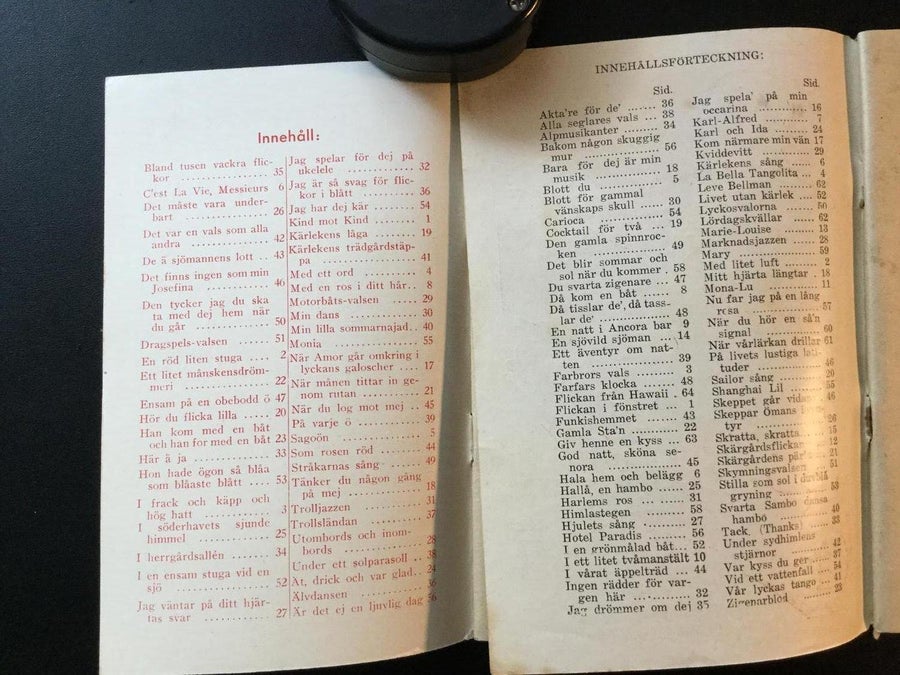 Innehåll:
Bland tusen vackra flic-
kor ............ 35
C'est La Vie, Messieurs 6
Det måste vara under-
bart ............ 26
Det var en vals som alla
andra ............ 42
De ä sjömannens lott .. 43
Det finns ingen som min
Josefina ............ 46
Den tycker jag du ska
ta med dej hem när
du går ............ 50
Dragspels-valsen ...... 51
En röd liten stuga .... 2
Ett litet månskensdröm-
meri ............ 22
Ensam på en obebodd ö 47
Hör du flicka lilla ..... 20
Han kom med en båt
och han for med en båt 23
Här ä ja ............ 33
Hon hade ögon så blåa
som blåaste blått .... 53
I frack och käpp och
hög hatt ............ 3
I söderhavets sjunde
himmel ............ 25
I herrgårdsallén ...... 34
I en ensam stuga vid en
sjö ............ 52
Jag väntar på ditt hjär-
tas svar ............ 27
Jag spelar för dej på
ukelele ............ 32
Jag är så svag för flic-
kor i blått ........ 36
Jag har dej kär ...... 54
Kind mot Kind ...... 1
Kärlekens låga ...... 19
Kärlekens trädgårdstäp-
pa ............ 41
Med ett ord ........ 4
Med en ros i ditt hår.. 8
Motorbåts-valsen .... 29
Min dans .......... 30
Min lilla sommarnajad.. 40
Monia ............ 55
När Amor går omkring i
lyckans galoscher .... 17
När månen tittar in ge-
nom rutan .......... 21
När du log mot mej .. 45
På varje ö .......... 39
Sagoön ............ 5
Som rosen röd ...... 44
Stråkarnas sång ...... 49
Tänker du någon gång
på mej ............ 18
Trolljazzen .......... 31
Trollsländan ........ 37
Utombords och inom-
bords ............ 28
Under ett solparasoll .. 38
Ät, drick och var glad.. 24
Älvdansen .......... 36
Är det ej en ljuvlig dag 56
INNEHÅLLSFÖRTECKNING:
Sid.
Akta're för de' ....... 36
Alla seglares vals ... 38
Alpmusikanter ....... 34
Bakom någon skuggig
mur ............ 56
Bara för dej är min
musik ............ 18
Blott du ............ 5
Blott för gammal
vänskaps skull ..... 30
Carioca ............ 54
Cocktail för två ... 19
Den gamla spinnroc-
ken ............ 49
Det blir sommar och
sol när du kommer . 58
Du svarta zigenare ... 47
Då kom en båt ...... 8
Då tisslar de', då tass-
lar de' ............ 48
En natt i Ancora bar 9
En sjövild sjöman ... 14
Ett äventyr om nat-
ten ............ 39
Farbrors vals ........ 3
Farfars klocka ....... 48
Flickan från Hawaii . 64
Flickan i fönstret ... 1
Funkishemmet ....... 43
Gamla Sta'n ........ 22
Giv henne en kyss ... 63
God natt, sköna se-
nora ............ 45
Hala hem och belägg 6
Hallå, en hambo ..... 25
Harlems ros ........ 31
Himlastegen ........ 58
Hjulets sång ........ 27
Hotel Paradis ....... 56
I en grönmålad båt... 52
I ett litet tvåmanstält 10
I vårat äppelträd ... 44
Ingen rädder för var-
gen här ............ 32
Jag drömmer om dej 35
Sid.
Jag spela' på min
occarina ............ 16
Karl-Alfred ........ 7
Karl och Ida ....... 24
Kom närmare min vän 17
Kviddevitt ......... 29
Kärlekens sång ..... 6
La Bella Tangolita .. 4
Leve Bellman ....... 62
Livet utan kärlek ... 52
Lyckosvalorna ...... 50
Lördagskvällar ..... 62
Marie-Louise ....... 13
Marknadsjazzen .... 28
Mary ............ 59
Med litet luft ...... 2
Mitt hjärta längtar . 18
Mona-Lu ............ 11
Nu far jag på en lång
resa ............ 57
När du hör en så'n
signal ............ 60
När vårlärkan drillar 61
På livets lustiga lati-
tuder ............ 46
Sailor sång ........ 20
Shanghai Lil ....... 55
Skeppet går vidare 46
Skeppar Ömans även-
tyr ............ 26
Skratta, skratta... 15
Skärgårdsflickan 12
Skärgårdens pärla 21
Skymningsvalsen 51
Stilla som sol i durblå
gryning ............ 53
Svarta Sambo dansa
hambo ............ 40
Tack (Thanks) ... 33
Under sydhimlens
stjärnor ............ 42
Var kyss du ger .... 37
Vid ett vattenfall ... 54
Vår lyckas tango ... 41
Zigenarblod ........ 23